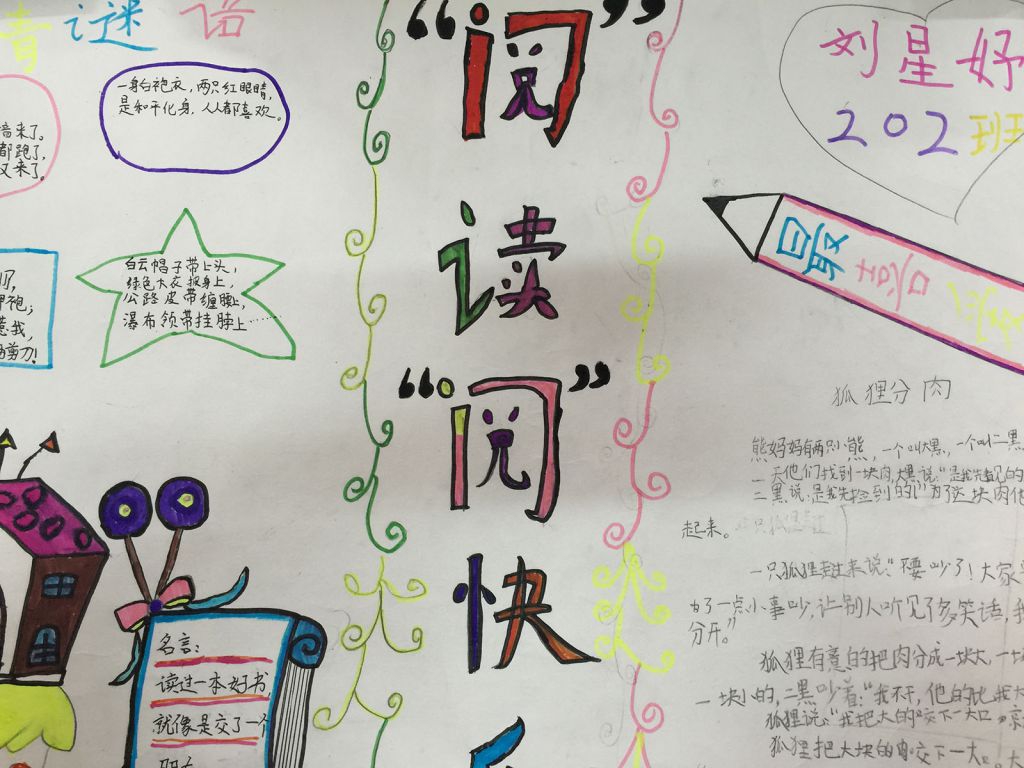 谜语
一身白袍衣，两只红眼睛，
是和平化身，人人都喜欢。
来了。
都跑了，
又来了。
白云帽子带上头，
绿色大衣披身上，
公路皮带缠腰上，
瀑布领带挂脖上……
剪刀！
名言：
读过一本好书
就像是交了一个
“阅
读
阅”
快
刘星妤
202班
最喜
狐狸分肉
熊妈妈有俩只小熊，一个叫大黑，一个叫二黑
一天他们找到一块肉，大黑说：“是我先看见的
二黑说，是我先捡到的！”为了这块肉他
起来。
一只狐狸走过来说：“不要吵了！大家
为了一点小事吵，让别人听见了多笑话，我
分开。”
狐狸有意的把肉分成一块大，一块
一块小的，二黑吵着：“我不干，他的比我大
狐狸说：“我把大的咬下一大口。
狐狸把大块的肉咬下一大口。大